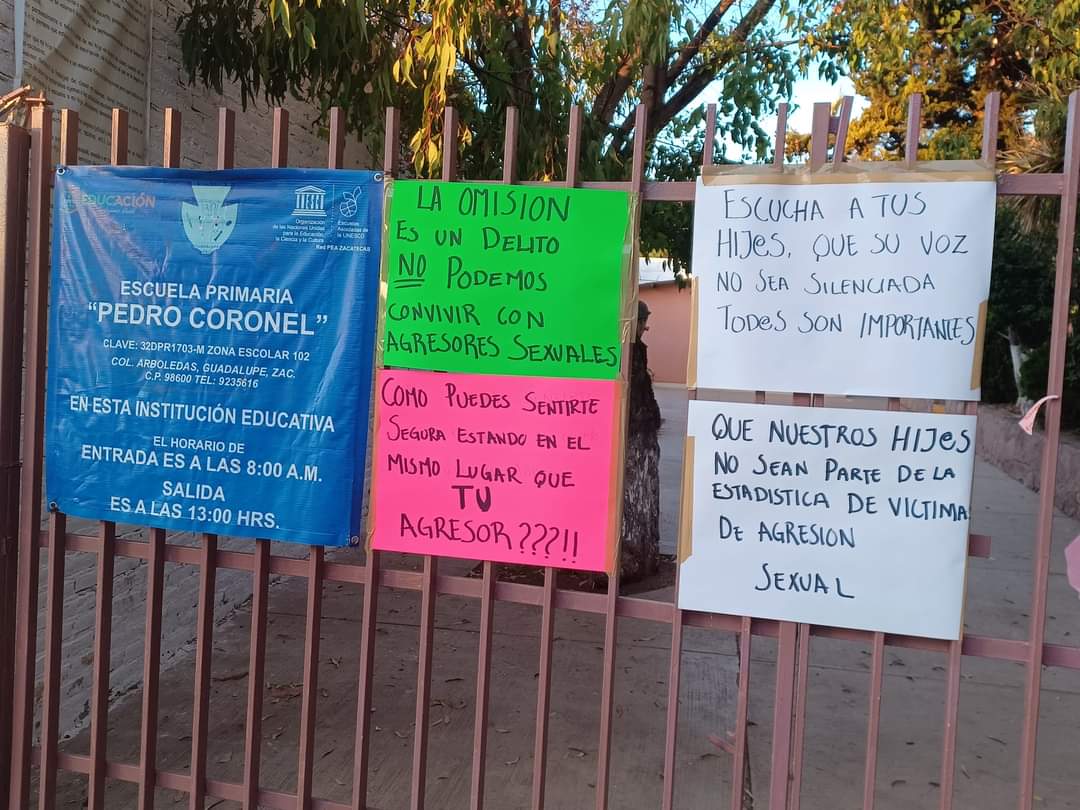 EDUCACIÓN
Organización
de las Naciones Unidas
para la Educación,
la Ciencia y la Cultura
Escuelas
Asociadas de
la UNESCO
Red PEA ZACATECAS
ESCUELA PRIMARIA
“PEDRO CORONEL”
CLAVE: 32DPR1703-M ZONA ESCOLAR 102
COL. ARBOLEDAS, GUADALUPE, ZAC.
C.P. 98600 TEL: 9235616
EN ESTA INSTITUCIÓN EDUCATIVA
EL HORARIO DE
ENTRADA ES A LAS 8:00 A.M.
SALIDA
ES A LAS 13:00 HRS.
LA OMISION
ES UN DELITO
NO PODEMOS
CONVIVIR CON
AGRESORES SEXUALES
COMO PUEDES SENTIRTE
SEGURA ESTANDO EN EL
MISMO LUGAR QUE
TU
AGRESOR???!!
ESCUCHA A TUS
HIJES, QUE SU VOZ
NO SEA SILENCIADA
TODES SON IMPORTANTES
QUE NUESTROS HIJES
NO SEAN PARTE DE LA
ESTADISTICA DE VICTIMA
DE AGRESION
SEXUAL